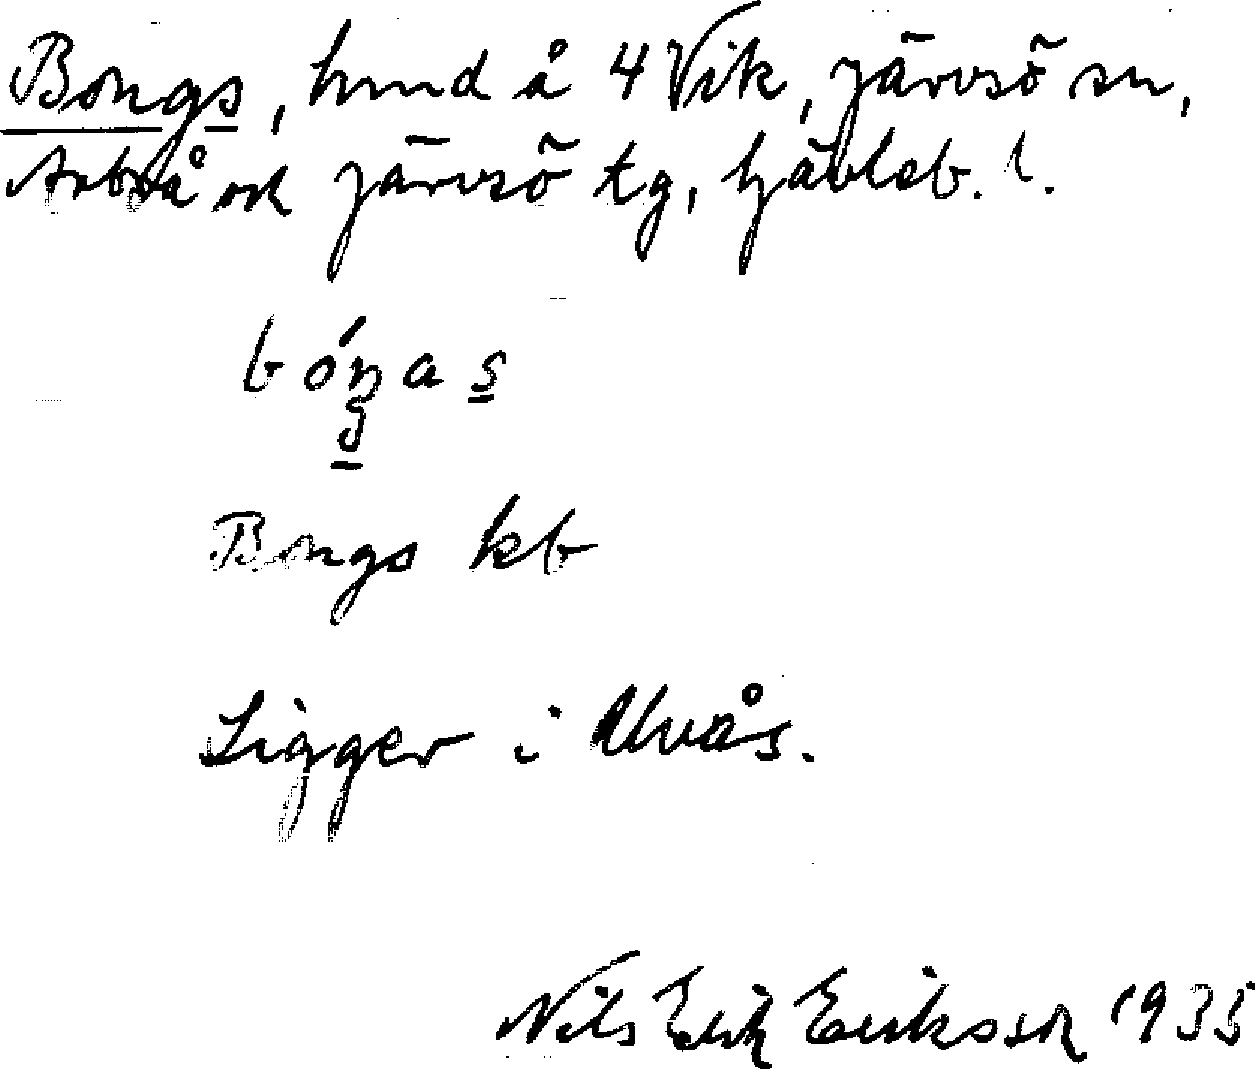 Bongs, hmd å 4 Vik, Järvsö sn,
Arbrå och Järvsö tg, Gävleb. l.
Bongs kb
Ligger i Ulvås.
Nils Erik Eriksson 1935